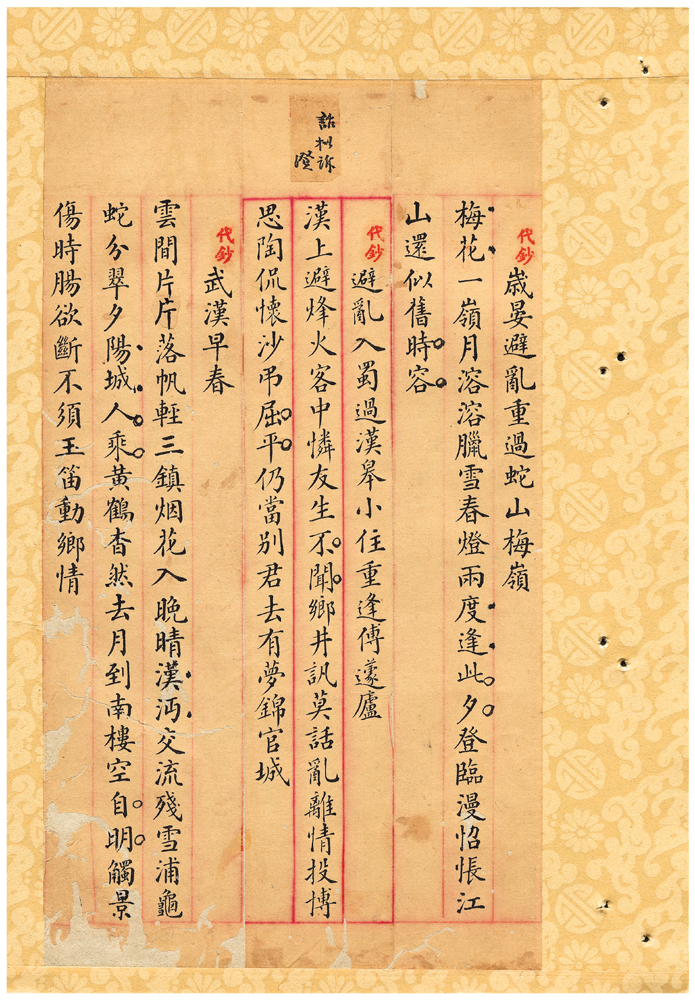 代鈔 歳晏避亂重過蛇山梅嶺
梅花一嶺月溶溶臘雪春燈兩度逢此夕登臨漫怊悵江
山還似舊時容
話拟訴
澄
代鈔 避亂入蜀過漢皋小住重逢傅蘧廬
漢上避烽火客中憐友生不聞鄉井訊莫話亂離情投博
思陶侃懷沙弔屈平仍當別君去有夢錦官城
代鈔 武漢早春
雲間片片落帆輕三鎮烟花入晚晴漢沔交流殘雪浦龜
蛇分翠夕陽城人乘黃鶴杳然去月到南樓空自明觸景
傷時腸欲斷不須玉笛動鄉情